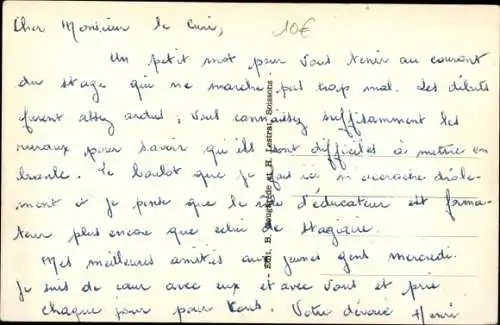 Cher Monsieur le Curé,
10€
Un petit mot pour vous tenir au courant
du stage qui ne marche pas trop mal. Les débuts
furent assez ardus ; vous connaissez suffisamment les
ruraux pour savoir qu'ils sont difficiles à mettre en
branle. Le boulot que je fais ici m'accroche drôle-
ment et je pense que le rôle d'éducateur est forma-
teur plus encore que celui de stagiaire.
Mes meilleures amitiés aux jeunes gens mercredi.
Je suis de cœur avec eux et avec vous et prie
chaque jour pour tous. Votre dévoué Henri
- Edit. B. et H. Lestrat, Soissons